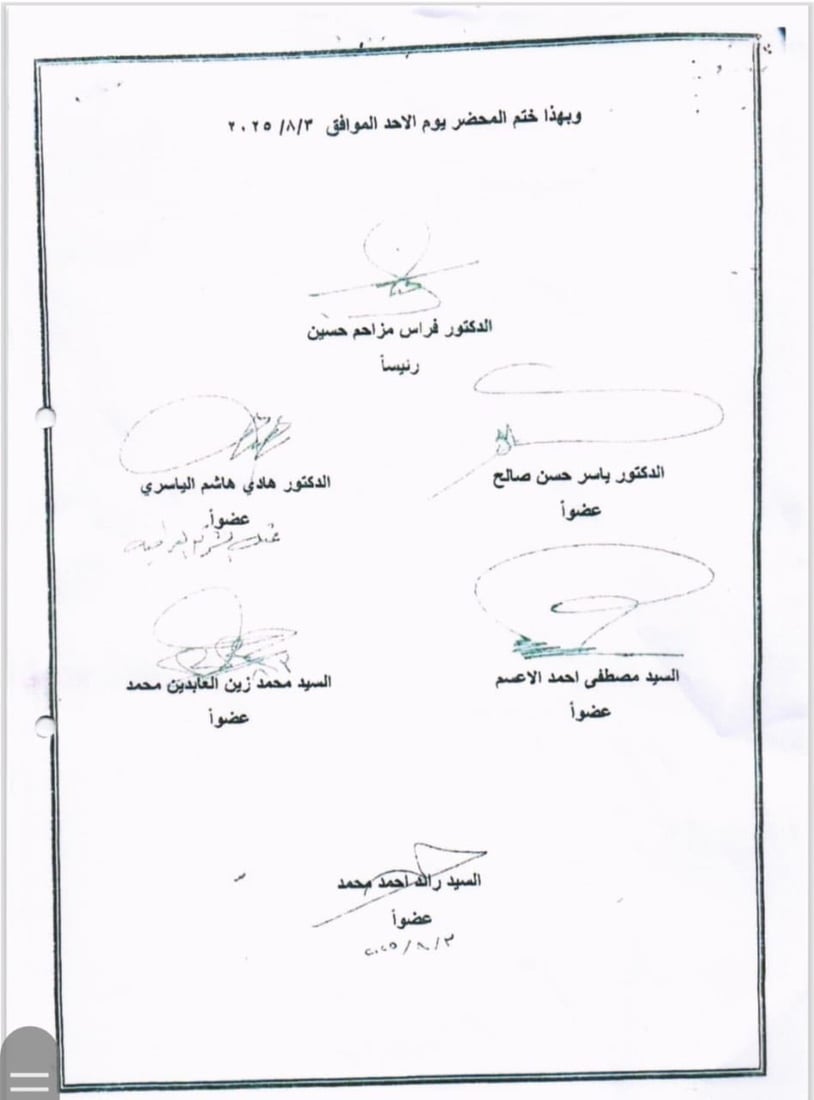 وبهذا ختم المحضر يوم الاحد الموافق ٢٠٢٥/٨/٣
الدكتور فراس مزاحم حسين
رئيساً
الدكتور ياسر حسن صالح
عضواً
الدكتور هادي هاشم الياسري
عضواً
السيد مصطفى احمد الاعسم
عضواً
السيد محمد زين العابدين محمد
عضواً
السيد رائد احمد محمد
عضواً
٢٠٢٥/٨/٣